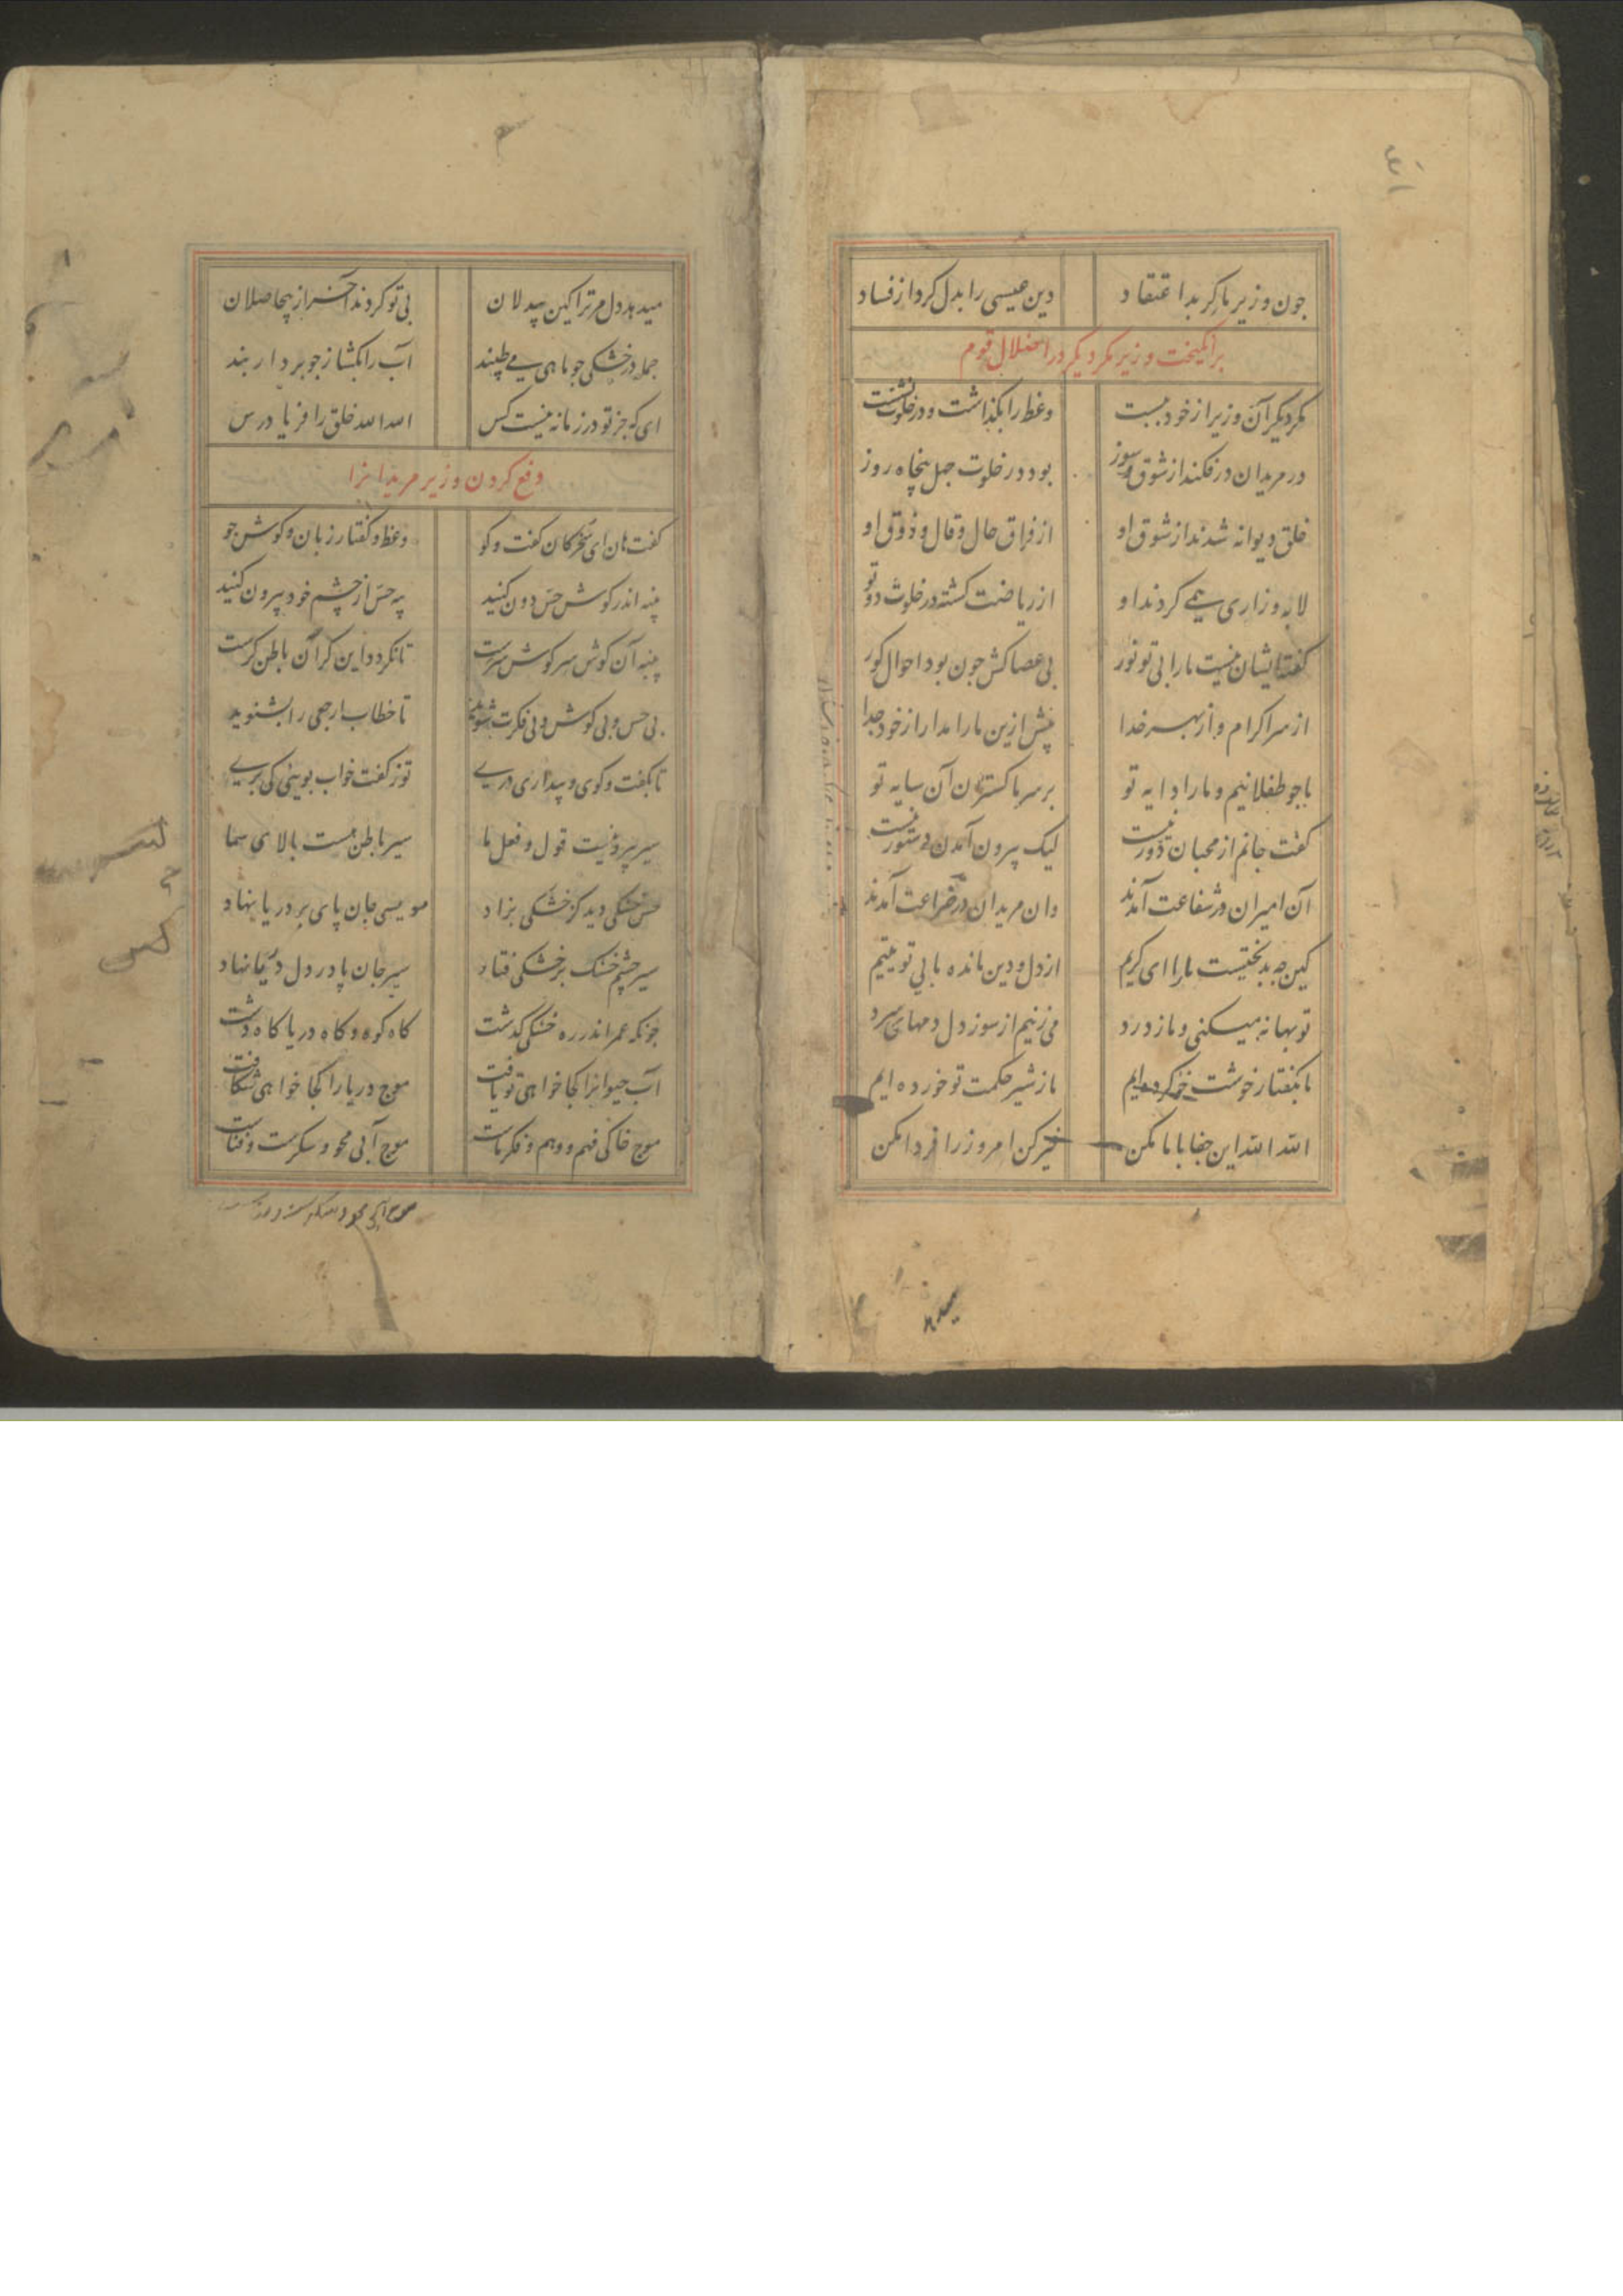 جون وزیر ماکر بد اعتقاد دین عیسی را بدل کرد از فساد
برانکیخت وزیر مکر دیکر در اضلال قوم
مکر دیکر آن وزیر از خود ببست وعظ را بکذاشت و در خلوت نشست
در مریدان در فکند از شوق و سوز بود در خلوت جهل بنجاه روز
خلق دیوانه شدند از شوق او از فراق حال و قال و ذوق او
لابه و زاری همی کردند او از ریاضت کشته در خلوت دوتو
کفت ایشان نیست ما را بی تو نور بی عصاکش جون بود احوال کور
از سر اکرام و از بهر خدا بیش ازین ما را مدار از خود جدا
ما جو طفلانیم و ما را دایه تو بر سر ما کستران آن سایه تو
کفت جانم از محبان دور نیست لیک بیرون آمدن دستور نیست
آن امیران در شفاعت آمدند وان مریدان در ضراعت آمدند
کین جه بدبختیست ما را ای کریم از دل و دین مانده ما بی تو یتیم
تو بهانه میکنی و ما ز درد می زنیم از سوز دل دمهای سرد
ما بکفتار خوشت خو کرده ایم ما ز شیر حکمت تو خورده ایم
الله الله این جفا با ما مکن خیر کن امروز را فردا مکن
میدهد دل مر ترا کین بیدلان بی تو کردند آخر از بیحاصلان
جمله در خشکی جو ماهی می طپند آب را بکشا ز جو بردار بند
ای که جز تو در زمانه نیست کس الله الله خلق را فریاد رس
دفع کردن وزیر مریدانرا
کفت هان ای سخرکان کفت و کو وعظ و کفتار زبان و کوش جو
بنبه اندر کوش حس دون کنید بند حس از جشم خود بیرون کنید
بنبه آن کوش سر کوش سرست تا نکردد این کر آن باطن کرست
بی حس و بی کوش و بی فکرت شوید تا خطاب ارجعی را بشنوید
تا بکفت و کوی و بیداری دری تو ز کفت خواب بویی کی بری
سیر بیرونیست قول و فعل ما سیر باطن هست بالای سما
حس خشکی دید کز خشکی بزاد موسیی جان پای بر دریا نهاد
سیر جشم خشک بر خشکی فتاد سیر جان پا در دل دریا نهاد
جونکه عمر اندر ره خشکی کذشت کاه کوه و کاه دریا کاه دشت
آب حیوانرا کجا خواهی تو یافت موج دریا را کجا خواهی شکافت
موج خاکی فهم و وهم و فکر ماست موج آبی محو و سکرست و فناست
موج آبی محو و سکرست و